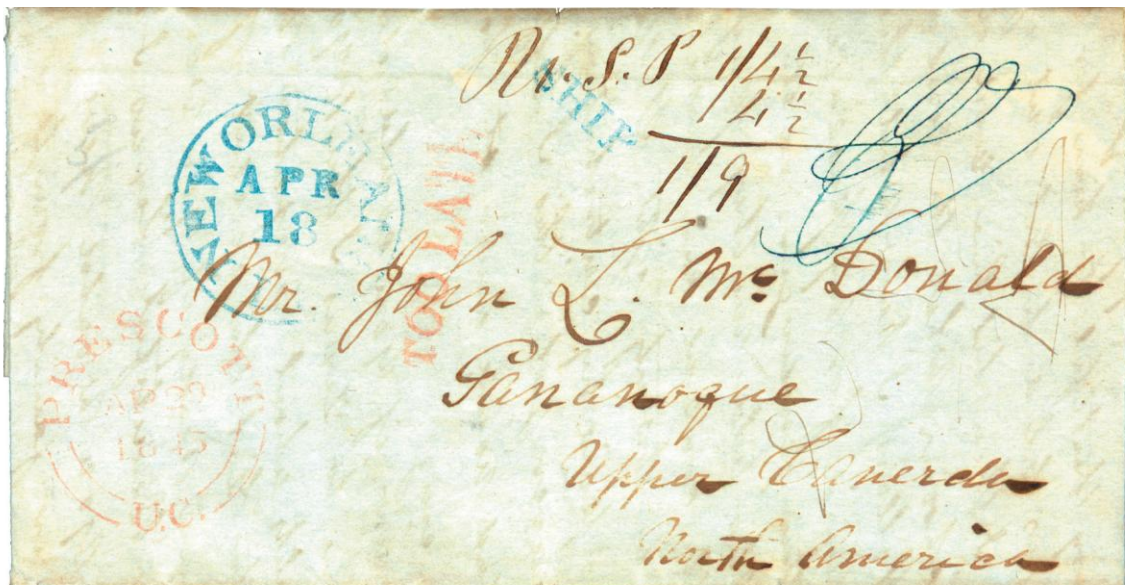 S. P 1/4½
4½
1/9
SHIP
NEW ORLEANS
APR
18
Mr. John L. Mc Donald
Gananoque
Upper Canerda
North America
PRESCOTT
AP 29
1845
U.C.